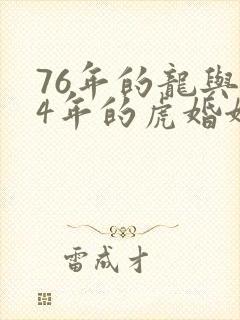 76年的龍與
4年的虎婚
雷成才